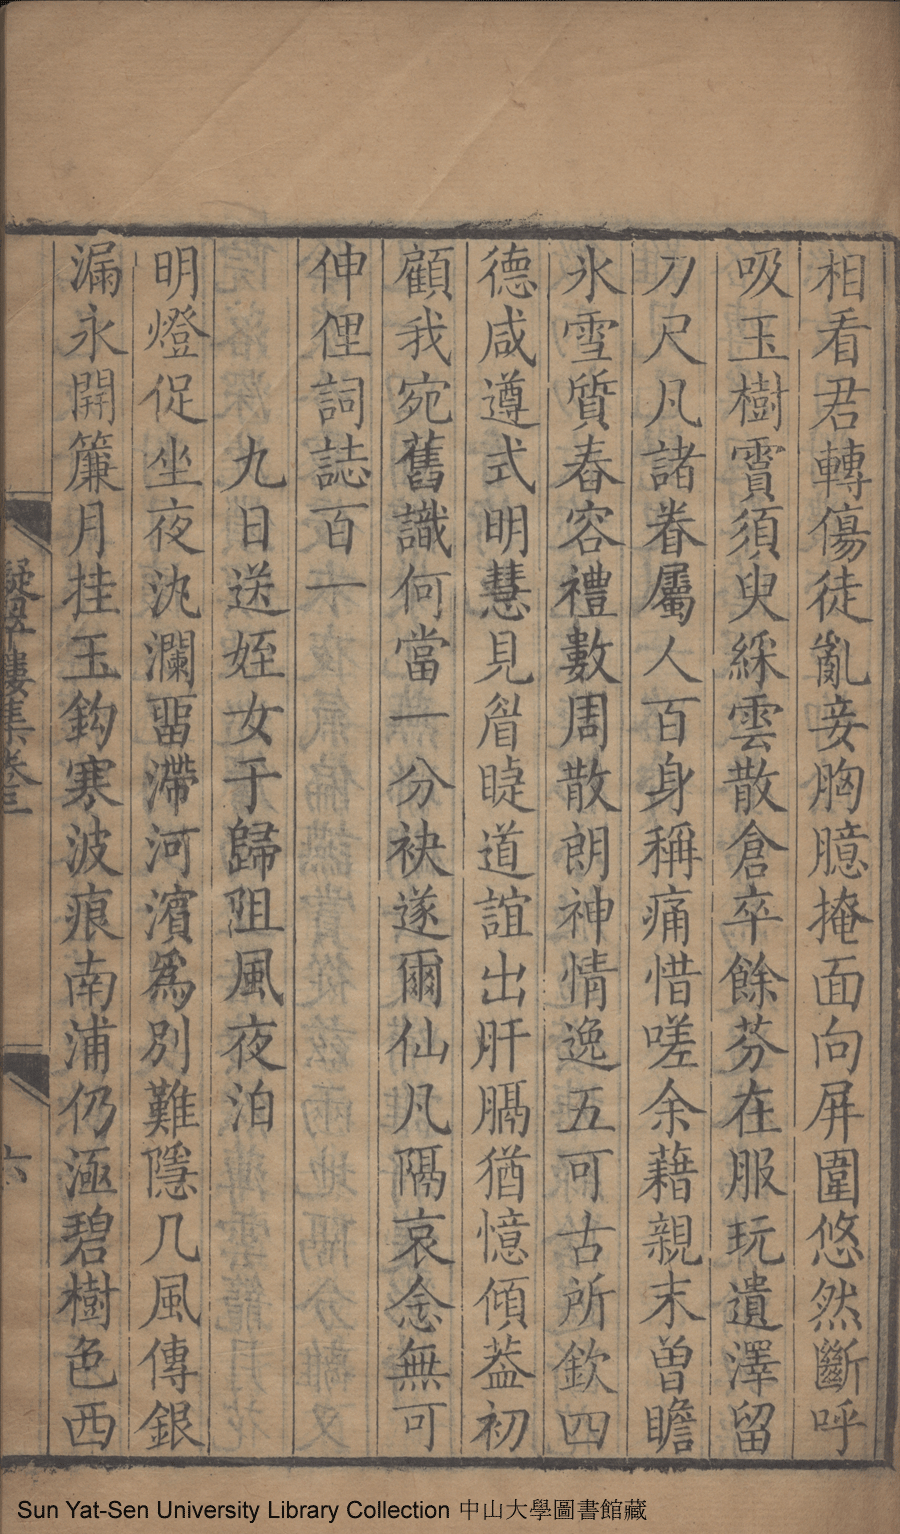 相看君轉傷徒亂妾胸臆掩面向屏圍悠然斷呼
吸玉樹霣須臾綵雲散倉卒餘芬在服玩遺澤留
刀尺凡諸眷屬人百身稱痛惜嗟余藉親末曽瞻
氷雪質春容禮數周散朗神情逸五可古所欽四
德咸遵式明慧見眉睫道誼出肝膈猶憶傾葢初
顧我宛舊識何當一分袂遂爾仙凡隔哀念無可
伸俚詞誌百一
九日送姪女于歸阻風夜泊
明燈促坐夜沈瀾畱滯河濱爲別難隱几風傳銀
漏永開簾月挂玉鈎寒波痕南浦仍涵碧樹色西
凝翠樓集卷三
六
Sun Yat-Sen University Library Collection 中山大學圖書館藏